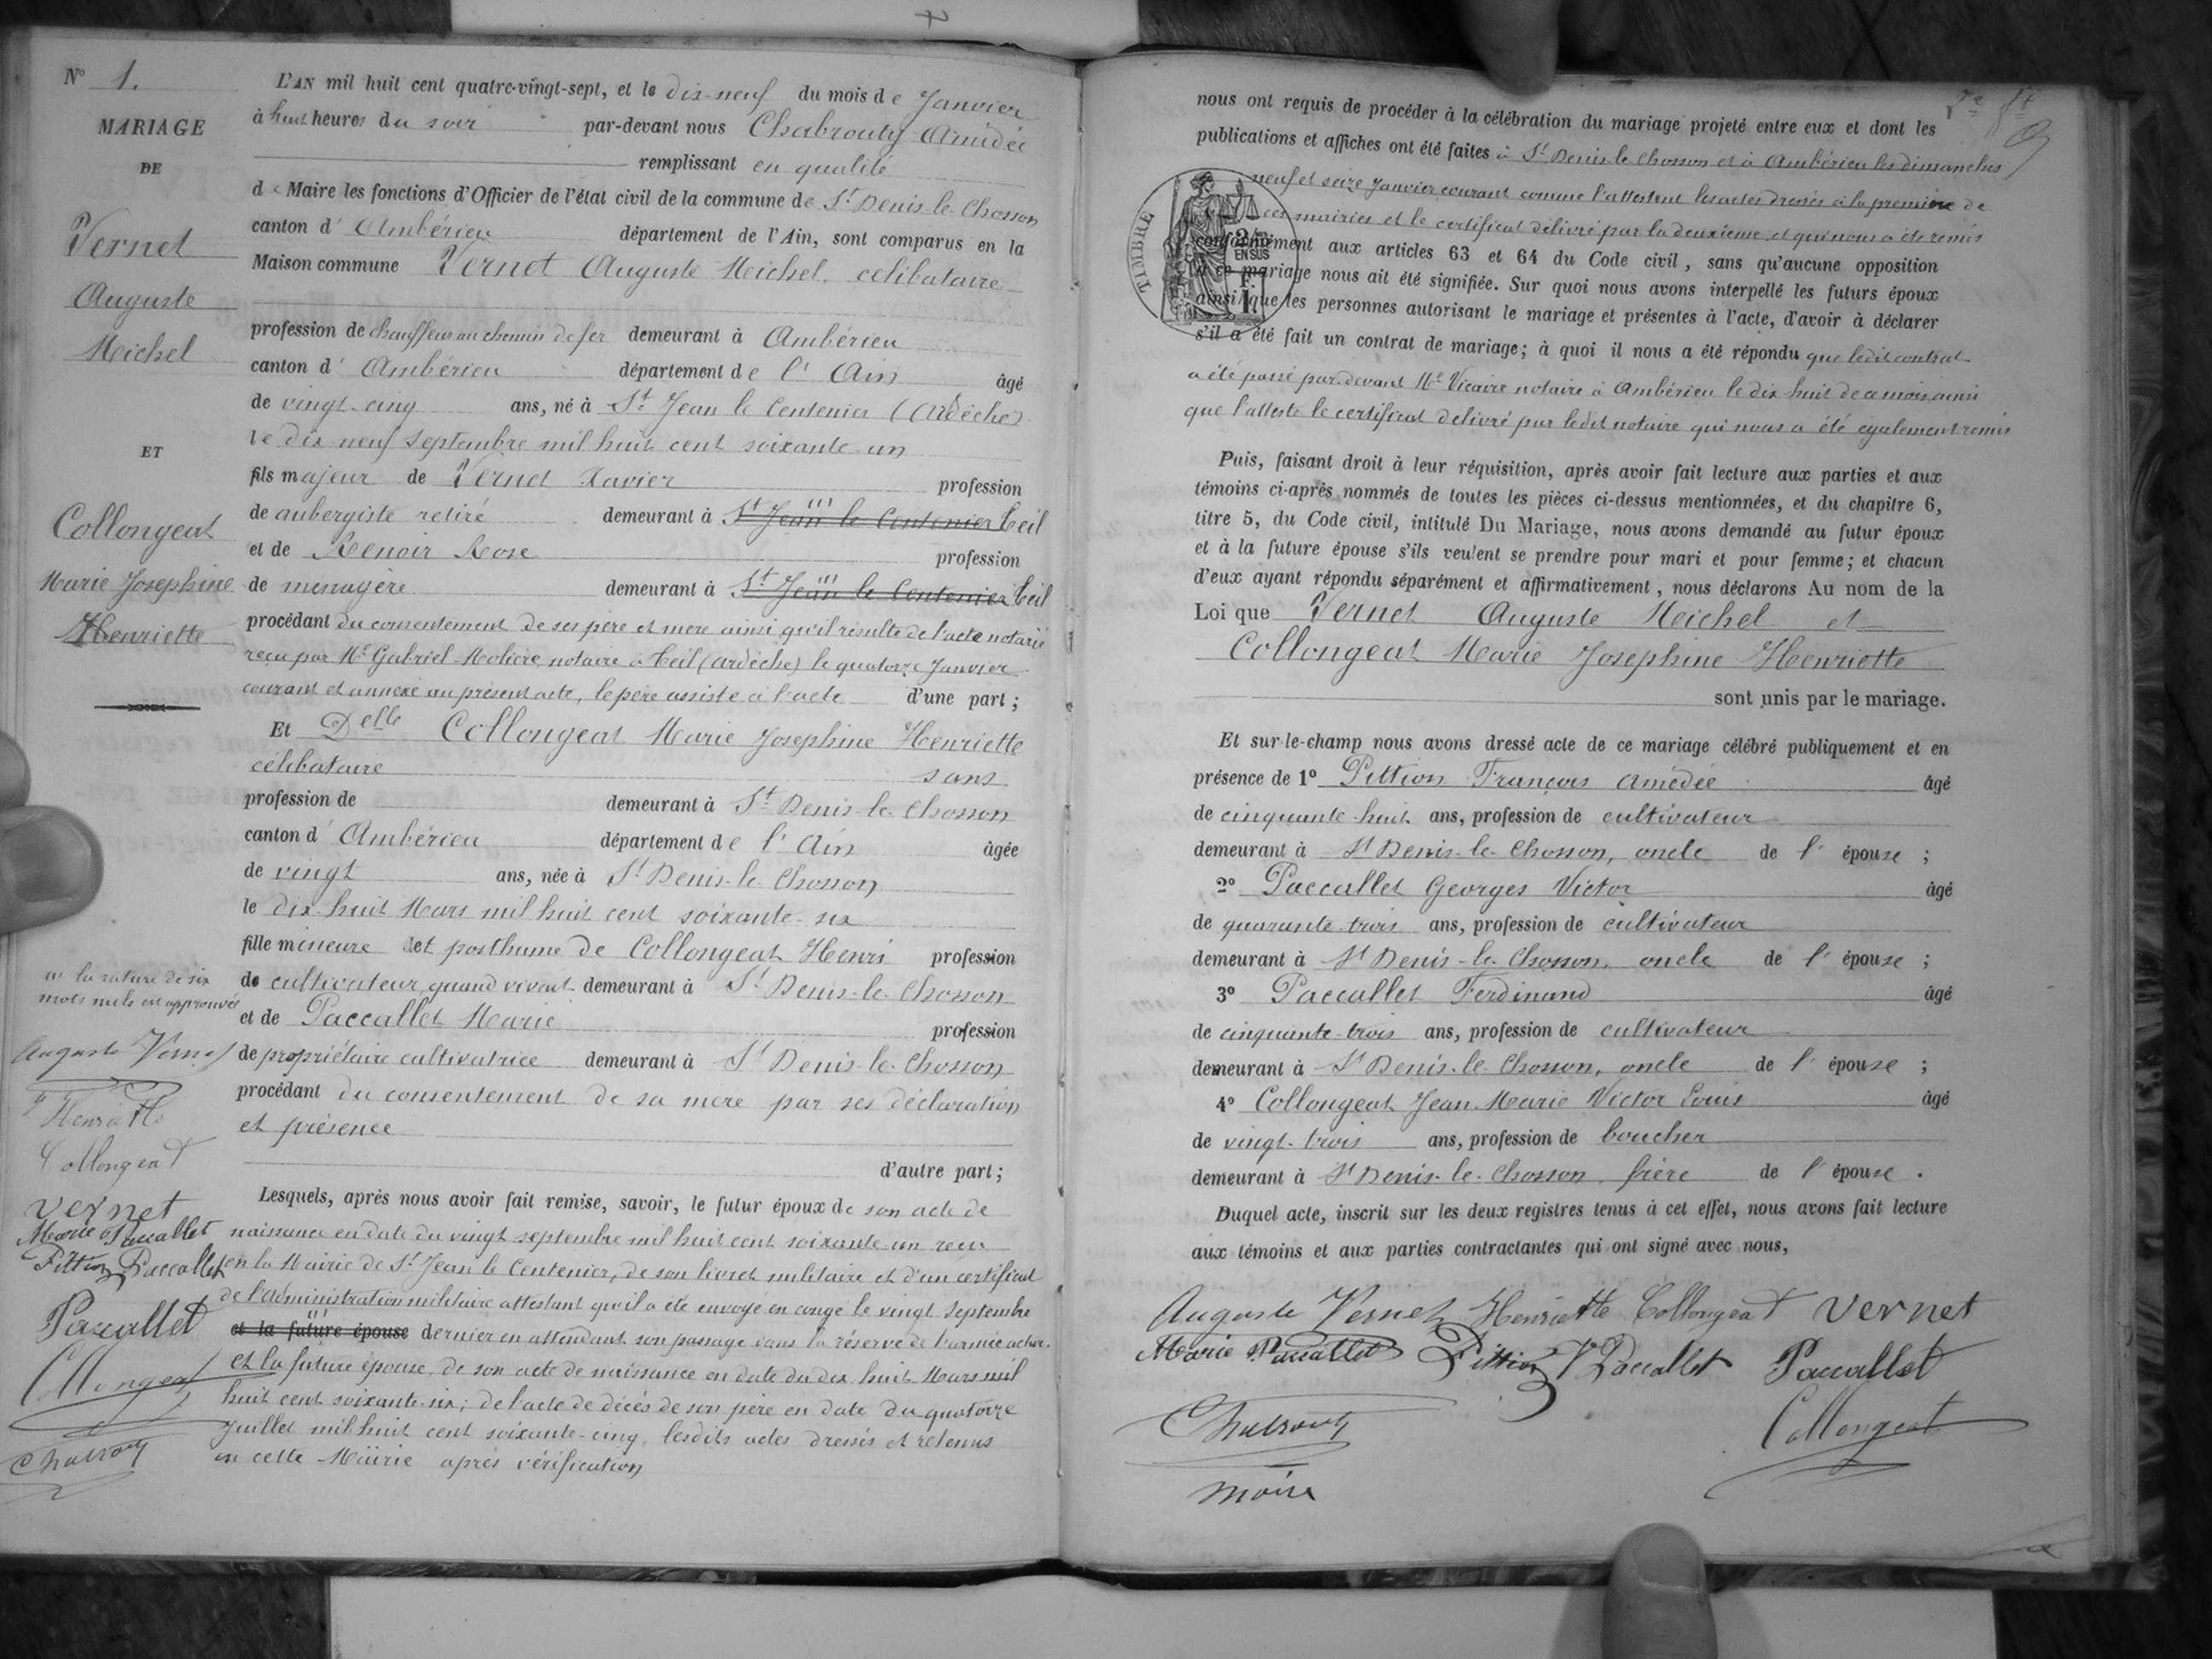 N° 1.
MARIAGE
DE
Vernet
Auguste
Michel
ET
Collongeat
Marie Josephine
Henriette
L'AN mil huit cent quatre-vingt-sept, et le dix-neuf du mois de Janvier
à huit heures du soir par-devant nous Chabrouty Amédée
remplissant en qualité
de Maire les fonctions d'Officier de l'état civil de la commune de St Denis-le-Chosson
canton d' Ambérieu département de l'Ain, sont comparus en la
Maison commune Vernet Auguste Michel, célibataire
profession de chauffeur au chemin de fer demeurant à Ambérieu
canton d' Ambérieu département de l' Ain âgé
de vingt-cinq ans, né à St Jean le Centenier (Ardèche)
le dix neuf septembre mil huit cent soixante un
fils majeur de Vernet Xavier profession
de aubergiste retiré demeurant à St Jean le Centenier Teil
et de Renoir Rose profession
de ménagère demeurant à St Jean le Centenier Teil
procédant du consentement de ses père et mère ainsi qu'il résulte de l'acte notarié
reçu par Me Gabriel Molière, notaire à Teil (Ardèche) le quatorze Janvier
courant et annexé au présent acte, le père assiste à l'acte d'une part ;
Et Delle Collongeat Marie Josephine Henriette
célibataire sans
profession de demeurant à St Denis-le-Chosson
canton d' Ambérieu département de l' Ain âgée
de vingt ans, née à St Denis-le-Chosson
le dix-huit Mars mil huit cent soixante-six
fille mineure et posthume de Collongeat Henri profession
de cultivateur, quand vivait demeurant à St Denis-le-Chosson
et de Paccallet Marie profession
de propriétaire cultivatrice demeurant à St Denis-le-Chosson
procédant du consentement de sa mère par ses déclaration
et présence
d'autre part ;
Lesquels, après nous avoir fait remise, savoir, le futur époux de son acte de
naissance en date du vingt septembre mil huit cent soixante un reçu
en la Mairie de St Jean le Centenier, de son livret militaire et d'un certificat
de l'administration militaire attestant qu'il a été envoyé en congé le vingt septembre
et la future épouse dernier en attendant son passage dans la réserve de l'armée active.
et la future épouse, de son acte de naissance en date du dix huit Mars mil
huit cent soixante-six ; de l'acte de décès de son père en date du quatorze
Juillet mil huit cent soixante-cinq, lesdits actes dressés et retenus
en cette Mairie après vérification
''' la rature de six
mots nuls est approuvée
Auguste Vernet
Henriette
Collongeat
Vernet
Marie Paccallet
Pittion Paccallet
Paccallet
Collongeat
Chabrouty
nous ont requis de procéder à la célébration du mariage projeté entre eux et dont les
publications et affiches ont été faites à St Denis-le-Chosson et à Ambérieu les dimanches
neuf et seize Janvier courant comme l'attestent les actes dressés à la première de
ces mairies et le certificat délivré par la deuxième, et qui nous a été remis
conformément aux articles 63 et 64 du Code civil, sans qu'aucune opposition
à ce mariage nous ait été signifiée. Sur quoi nous avons interpellé les futurs époux
ainsi que les personnes autorisant le mariage et présentes à l'acte, d'avoir à déclarer
s'il a été fait un contrat de mariage ; à quoi il nous a été répondu que ledit contrat
a été passé par-devant Me Vicaire notaire à Ambérieu le dix-huit de ce mois, ainsi
que l'atteste le certificat délivré par ledit notaire qui nous a été également remis
TIMBRE
EN SUS
Puis, faisant droit à leur réquisition, après avoir fait lecture aux parties et aux
témoins ci-après nommés de toutes les pièces ci-dessus mentionnées, et du chapitre 6,
titre 5, du Code civil, intitulé Du Mariage, nous avons demandé au futur époux
et à la future épouse s'ils veulent se prendre pour mari et pour femme ; et chacun
d'eux ayant répondu séparément et affirmativement, nous déclarons Au nom de la
Loi que Vernet Auguste Michel et
Collongeat Marie Josephine Henriette
sont unis par le mariage.
Et sur-le-champ nous avons dressé acte de ce mariage célébré publiquement et en
présence de 1° Pittion François Amédée âgé
de cinquante-huit ans, profession de cultivateur
demeurant à St Denis-le-Chosson, oncle de l' épouse ;
2° Paccallet Georges Victor âgé
de quarante-trois ans, profession de cultivateur
demeurant à St Denis-le-Chosson, oncle de l' épouse ;
3° Paccallet Ferdinand âgé
de cinquante-trois ans, profession de cultivateur
demeurant à St Denis-le-Chosson, oncle de l' épouse ;
4° Collongeat Jean Marie Victor Louis âgé
de vingt-trois ans, profession de boucher
demeurant à St Denis-le-Chosson, frère de l' épouse.
Duquel acte, inscrit sur les deux registres tenus à cet effet, nous avons fait lecture
aux témoins et aux parties contractantes qui ont signé avec nous,
Auguste Vernet Henriette Collongeat Vernet
Marie Paccallet Pittion V Paccallet Paccallet
Chabrouty Collongeat
Maire